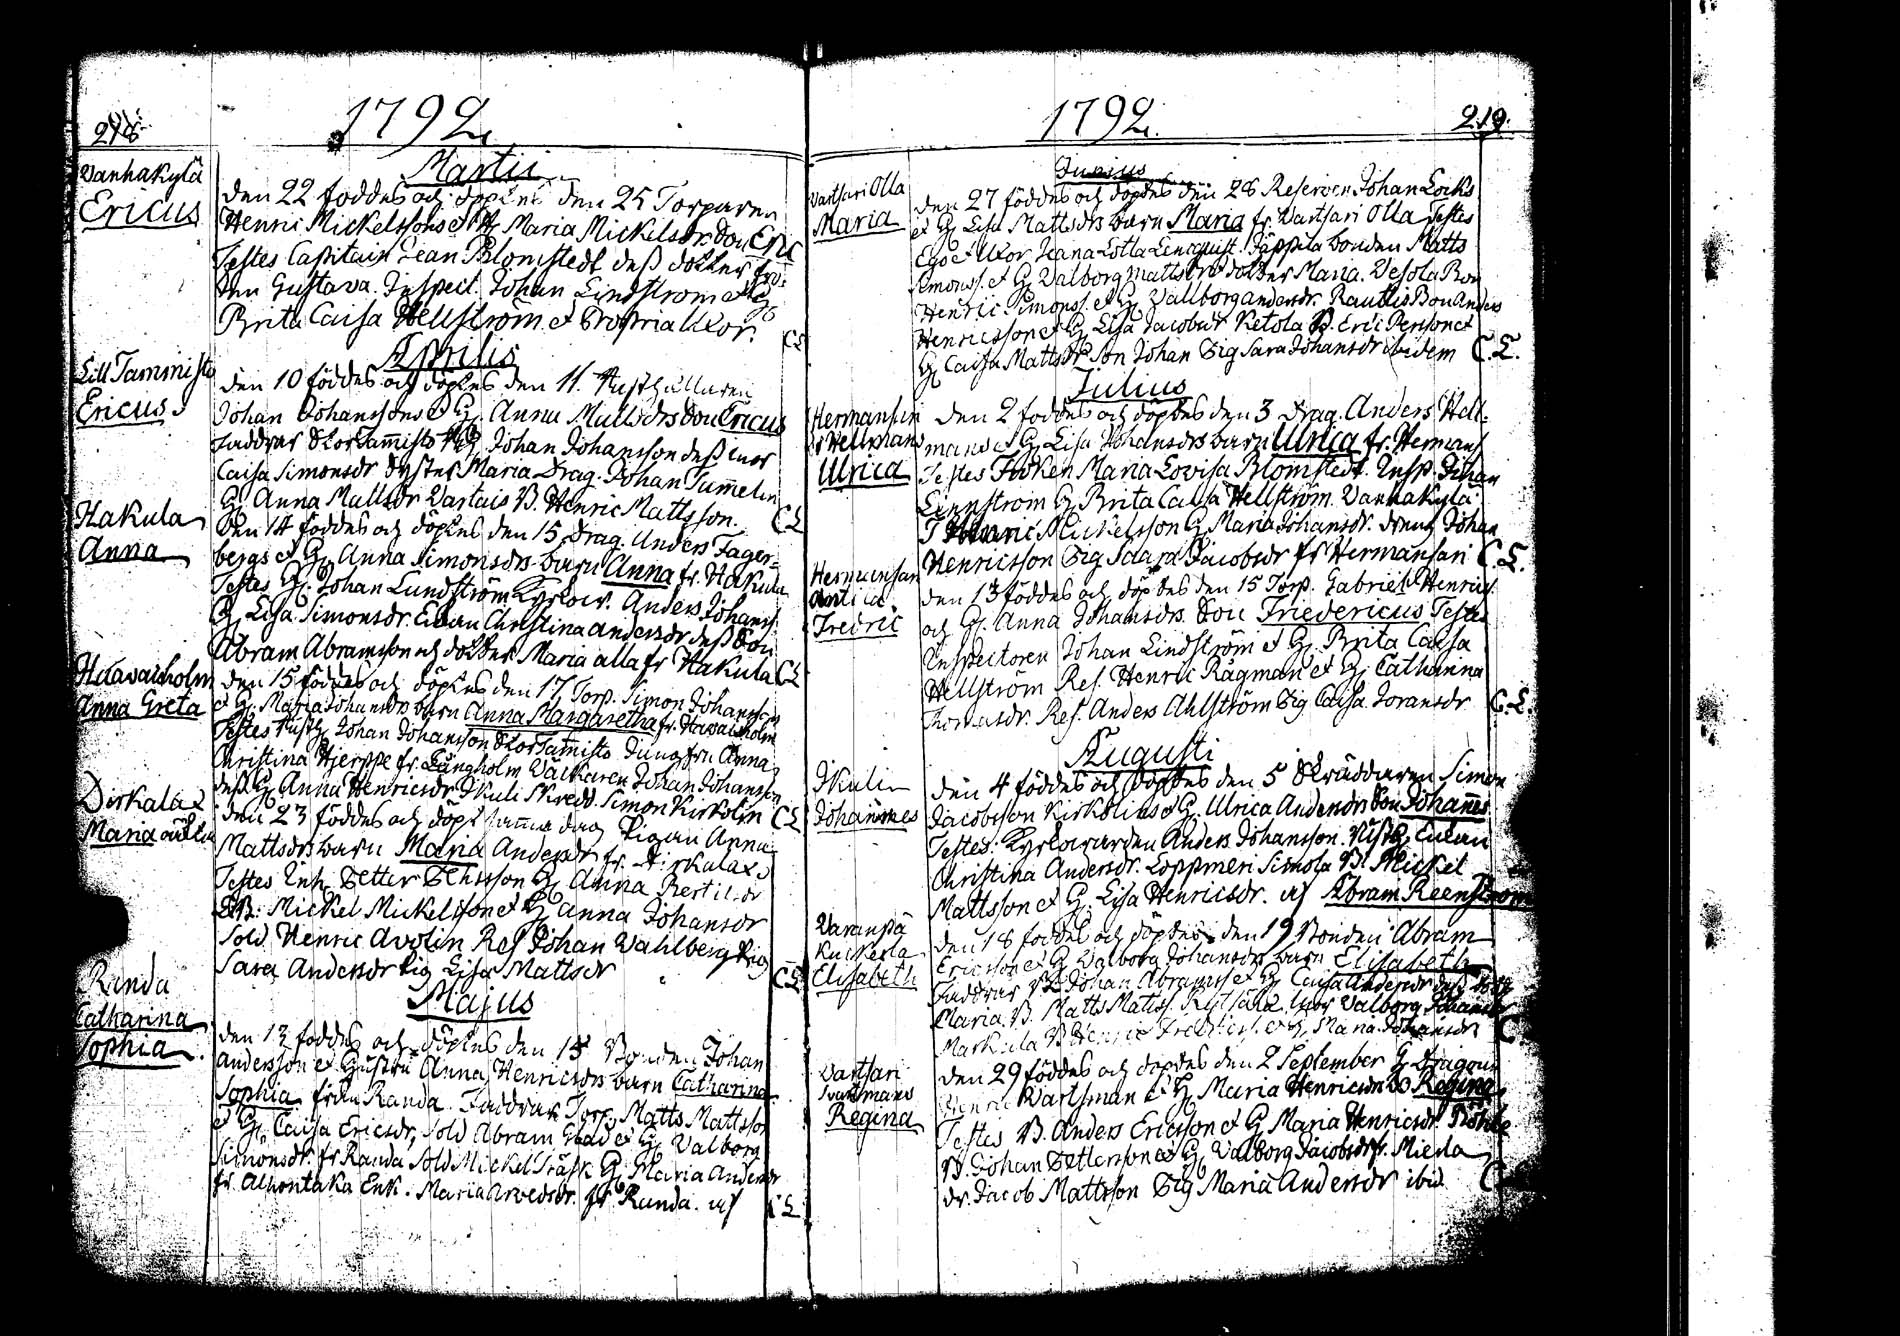 218
1792
Martii
Vanhakylä
Ericus
den 22 föddes och döptes den 25 Torparen
Henric Mickelssons et H Maria Mickelsdr. Son Eric
Testes Capitain Jean Blomstedt dess dotter frö-
ken Gustava. Inspect. Johan Lindström et Hu
Brita Caisa Hellström et Propria Uxor.
CL
Aprilis
Lill Tammisto
Ericus
den 10 föddes och döptes den 11. Husthållaren
Johan Johanssons et Hu Anna Mattsdrs Son Ericus
Faddrar Stortammisto Johan Johansson dess mor
Caisa Simonsdr Syster Maria Drag. Johan Tum̄elin
Hu Anna Mattsdr Vartais B. Henric Mattsson.
CL
Hakula
Anna
Den 14 föddes och döptes den 15 Drag. Anders Fager-
bergs et Hu Anna Simonsdrs barn Anna fr. Hakula
Testes Johan Lundström Kyrkov. Anders Johanss.
Hu Lisa Simonsdr. Enkan Christina Andersdr dess Son
Abram Abramsson och dotter Maria alla fr Hakula
CL
Haavaisholm
Anna Greta
den 15 föddes och döptes den 17 Torp. Simon Johansson
et Hu Maria Johansdr barn Anna Margaretha fr. Havaisholm
Testes Johan Johansson Stortam̄isto Jungfru Anna
Christina Hjerppe fr. Långholm Välkaren Johan Johansson
dess Hu Anna Henricsdr Ikuli Skredd. Simon Kirkolin
CL
Dirkalax
Maria oäkta
den 23 föddes och döpt sam̄a dag Pigan Anna
Mattsdrs barn Maria Andersdr fr. Dirkalax
Testes Inh. Petter Pehrsson Hu Anna Bertilsdr
B. Mickel Mickelsson et Hu Anna Johansdr
Sold. Henric Avolin Res Johan Wahlberg Pig
Sara Andersdr Pig Lisa Mattsdr
CL
Majus
Randa
Catharina
Sophia
den 13 föddes och döptes den 15 Bonden Johan
Andersson et Hustru Anna Henricsdrs barn Catharina
Sophia från Randa. Faddrar Torp. Matts Mattsson
et Hu Caisa Ericsdr, Sold Abram Glad et Hu Valborg
Simonsdr. fr Randa Sold Mickel Träsk Hu Maria Andersdr
fr. Alhontaka Enk. Maria Arvedsdr. fr Randa.
CL
1792.
219.
Junius
Vartsari Olla
Maria
den 27 föddes och döptes den 28 Reserven Johan Locks
et Hu Lisa Mattsdrs barn Maria fr Vartsari Olla Testes
Ego et Uxor Jeana Lotta Lindquist. Jäppila bonden Matts
Simonss. et Hu Valborg Mattsdr dotter Maria. Vesola Bon
Henric Simonss. et Hu Vallborg Andersdr. Rautlis Bon Anders
Henricsson et Hu Lisa Jacobsdr Ketola B. Eric Persson et
Hu Caisa Mattsdr Son Johan Pig Sara Johansdr ibidem
C.L.
Julius
Hermansari
Hellmans
Ulrica
den 2 föddes och döptes den 3 Drag. Anders Hell-
mans et Hu Lisa Johansdrs barn Ulrica fr. Hermans
Testes Fröken Maria Lovisa Blomstedt. Insp. Johan
Linnström Hu Brita Caisa Hellström. Vanhakylä
T Henric Mickelsson Hu Maria Johansdr. dreng Johan
Henricsson Pig Saara Jacobsdr fr Hermansari
C.L.
Hermansari
Antila
Fredric
den 13 föddes och döptes den 15 Torp. Gabriel Henricss.
och Hu Anna Johansdrs. Son Friedericus Testes
Inspectoren Johan Lindström et Hu Brita Caisa
Hellström Res. Henric Rågman et Hu Catharina
Thomasdr. Res. Anders Ahlström Pig Caisa Joransdr
C.L.
Augusti
Ikuli
Johannes
den 4 föddes och döptes den 5 Skräddaren Simon
Jacobsson Kirkolins et Hu Ulrica Andersdrs Son Johan̄es
Testes. Kyrkovärden Anders Johansson. Enkan
Christina Andersdr. Loppmeri Simola B. Mickel
Mattsson et Hu Lisa Henricsdr. Abram Reenström
Varanpä
Kuckerla
Elisabeth
den 18 föddes och döptes den 19 Bonden Abram
Ericsson et Hu Valborg Johansdrs barn Elisabeth
Faddrar B Johan Abramss et Hu Caisa Andersdr dess dotter
Maria. B. Matts Matss. Uxor Valborg Johansdr
Markula B Henric Fredricss. et Hu Maria Johansdr
C
Vartsari
Vartmans
Regina
den 29 föddes och döptes den 2 September Dragoun
Henric Wartsman et Hu Maria Henricsdrs B Regina
Testes B. Anders Ericsson et Hu Maria Henricsdr.
B. Johan Pettersson et Hu Valborg Jacobsdr fr. Mierla
dr. Jacob Mattsson Pig Maria Andersdr ibid.
C